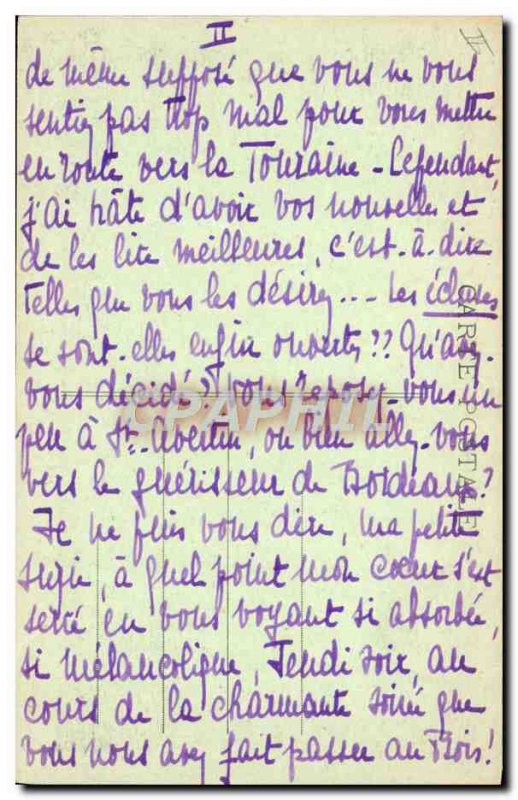 II
II
de même supposé que vous ne vous
sentiez pas trop mal pour vous mettre
en route vers la Touraine - Cependant,
j'ai hâte d'avoir vos nouvelles et
de les lire meilleures, c'est-à-dire
telles que vous les désirez... Les écluses
se sont-elles enfin ouvertes ?? Qu'avez-
vous décidé ? Vous reposez-vous un
peu à St-Avertin, ou bien allez-vous
vers le guérisseur de Bordeaux ?
Je ne puis vous dire, ma petite
Suzie, à quel point mon cœur s'est
serré en vous voyant si absorbée,
si mélancolique, Jeudi soir, au
cours de la charmante soirée que
vous nous avez fait passer au Bois !
CARTE POSTALE
CPAPHIL